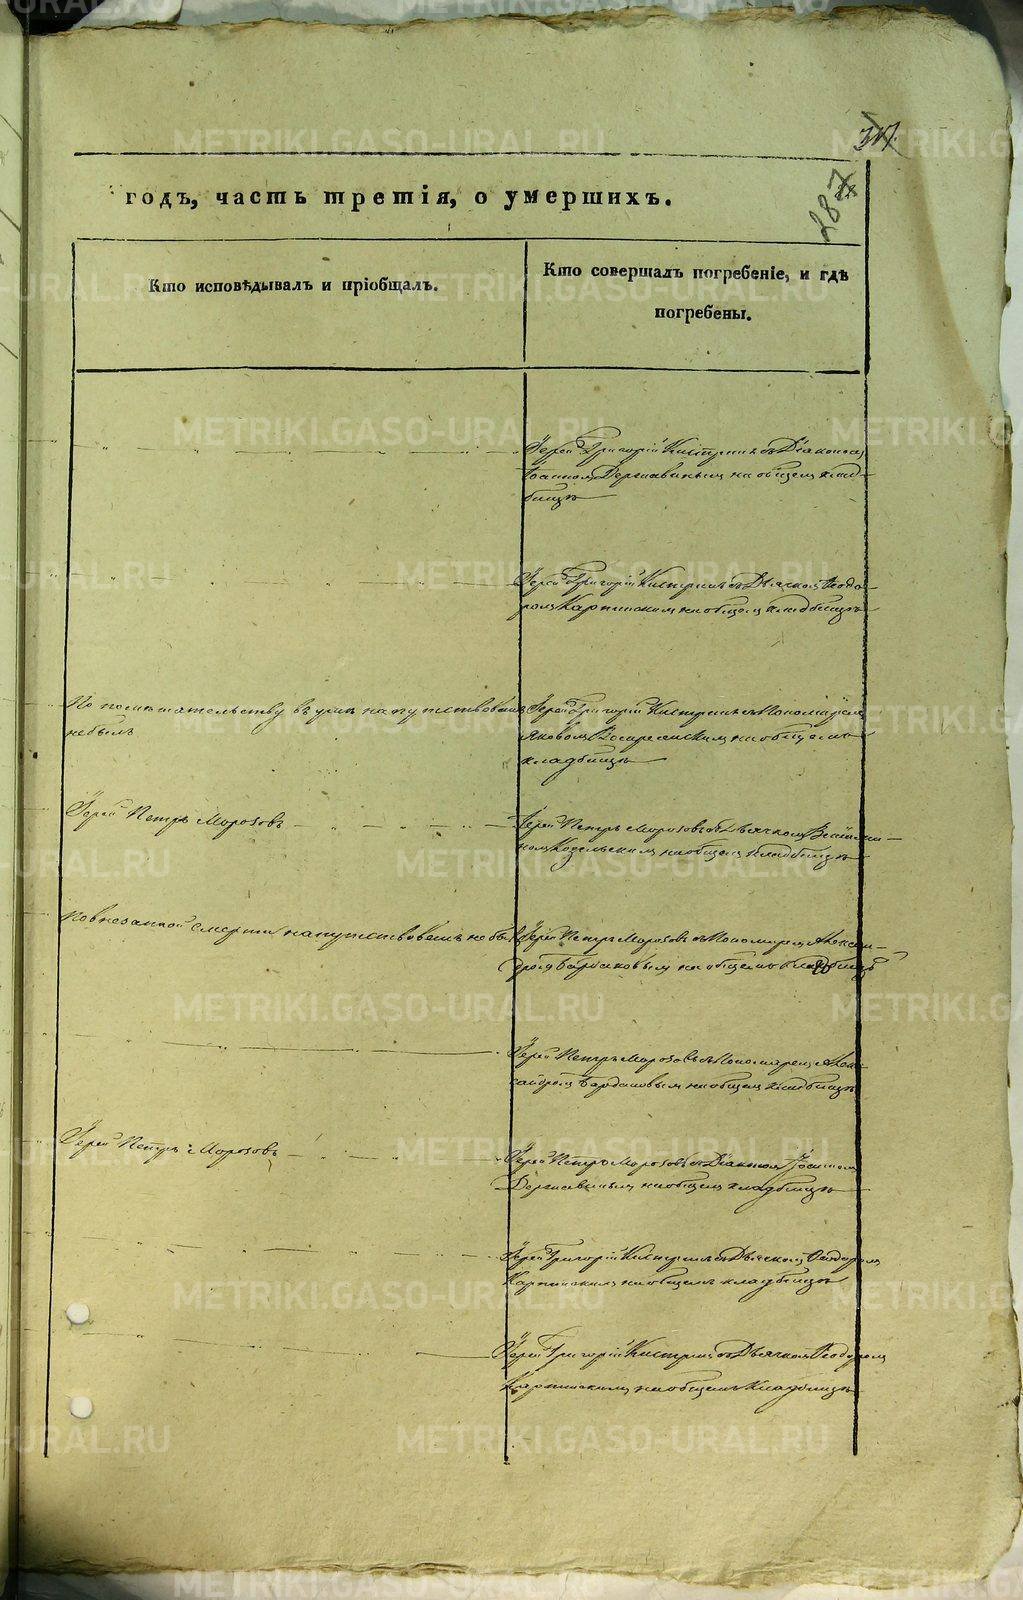 287
годъ, часть третія, о умершихъ.
Кто исповѣдывалъ и пріобщалъ.
Кто совершалъ погребеніе, и гдѣ
погребены.
Іерей Григорій съ Діакономъ
Державинымъ на общемъ клад-
бищѣ
Іерей Григорій съ Дьячкомъ Ѳеодо-
ромъ Карпинскимъ на общемъ кладбищѣ
По помѣшательству въ умѣ напутствованъ
небылъ
Іерей Григорій съ Пономаремъ
Яковомъ Воскресенскимъ на общемъ
кладбищѣ
Іерей Петръ Морозовъ
Іерей Петръ Морозовъ съ Дьячкомъ
на общемъ кладбищѣ
По внезапной смерти напутствованъ не былъ
Іерей Петръ Морозовъ съ Пономаремъ Алексан-
дромъ на общемъ кладбищѣ
Іерей Петръ Морозовъ съ Пономаремъ Алек-
сандромъ на общемъ кладбищѣ
Іерей Петръ Морозовъ
Іерей Петръ Морозовъ съ Діакономъ
Державинымъ на общемъ кладбищѣ
Іерей Григорій съ Дьячкомъ Ѳеодоромъ
Карпинскимъ на общемъ кладбищѣ
Іерей Григорій съ Дьячкомъ Ѳеодоромъ
Карпинскимъ на общемъ кладбищѣ
METRIKI.GASO-URAL.RU